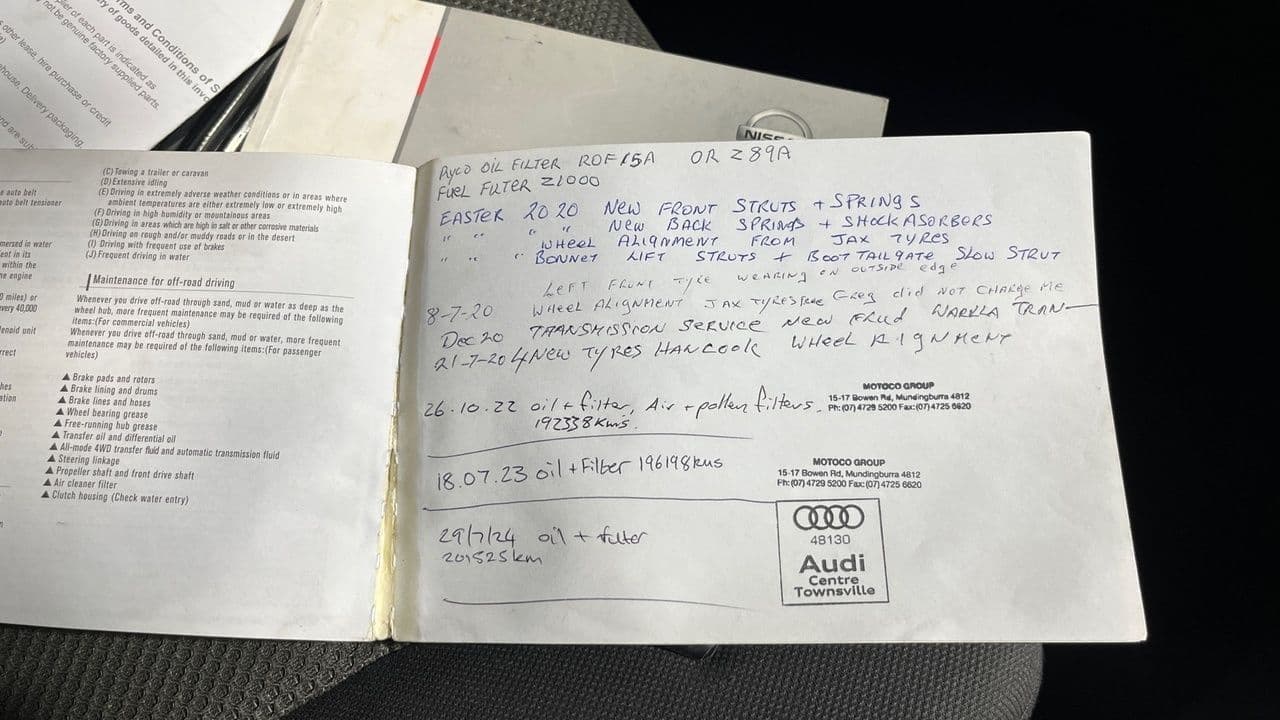 rms and Conditions of S
ry of goods detailed in this invo
plier of each part is indicated as
not be genuine factory supplied parts.
other lease, hire purchase or credit
house. Delivery packaging,
nd are sub
NISS
e auto belt
auto belt tensioner
mersed in water
ent in its
within the
he engine
0 miles) or
every 40,000
enaid unit
rrect
hes
ation
(C) Towing a trailer or caravan
(D) Extensive idling
(E) Driving in extremely adverse weather conditions or in areas where
ambient temperatures are either extremely low or extremely high
(F) Driving in high humidity or mountainous areas
(G) Driving in areas which are high in salt or other corrosive materials
(H) Driving on rough and/or muddy roads or in the desert
(I) Driving with frequent use of brakes
(J) Frequent driving in water
Maintenance for off-road driving
Whenever you drive off-road through sand, mud or water as deep as the
wheel hub, more frequent maintenance may be required of the following
items:(For commercial vehicles)
Whenever you drive off-road through sand, mud or water, more frequent
maintenance may be required of the following items:(For passenger
vehicles)
▲ Brake pads and rotors
▲ Brake lining and drums
▲ Brake lines and hoses
▲ Wheel bearing grease
▲ Free-running hub grease
▲ Transfer oil and differential oil
▲ All-mode 4WD transfer fluid and automatic transmission fluid
▲ Steering linkage
▲ Propeller shaft and front drive shaft
▲ Air cleaner filter
▲ Clutch housing (Check water entry)
RYCO OIL FILTER ROF15A OR Z89A
FUEL FILTER Z1000
EASTER 2020 NEW FRONT STRUTS + SPRINGS
" " " " NEW BACK SPRINGS + SHOCK ASORBERS
WHEEL ALIGNMENT FROM JAX TYRES
" " " BONNET LIFT STRUTS + BOOT TAILGATE SLOW STRUT
LEFT FRONT TYRE WEARING ON OUTSIDE edge
8-7-20 WHEEL ALIGNMENT JAX TYRES FREE Greg did NOT CHARGE ME
Dec 20 TRANSMISSION SERVICE NEW FLUD WARKLA TRAN
21-7-20 4 New TYRES HANCOOK WHEEL ALIGNMENT
26.10.22 oil + filter, Air + pollen filters.
192338kms.
MOTOCO GROUP
15-17 Bowen Rd, Mundingburra 4812
Ph:(07)4729 5200 Fax:(07)4725 6620
18.07.23 oil + Filter 196198kms
MOTOCO GROUP
15-17 Bowen Rd, Mundingburra 4812
Ph:(07)4729 5200 Fax:(07)4725 6620
29/7/24 oil + filter
201525km
48130
Audi
Centre
Townsville